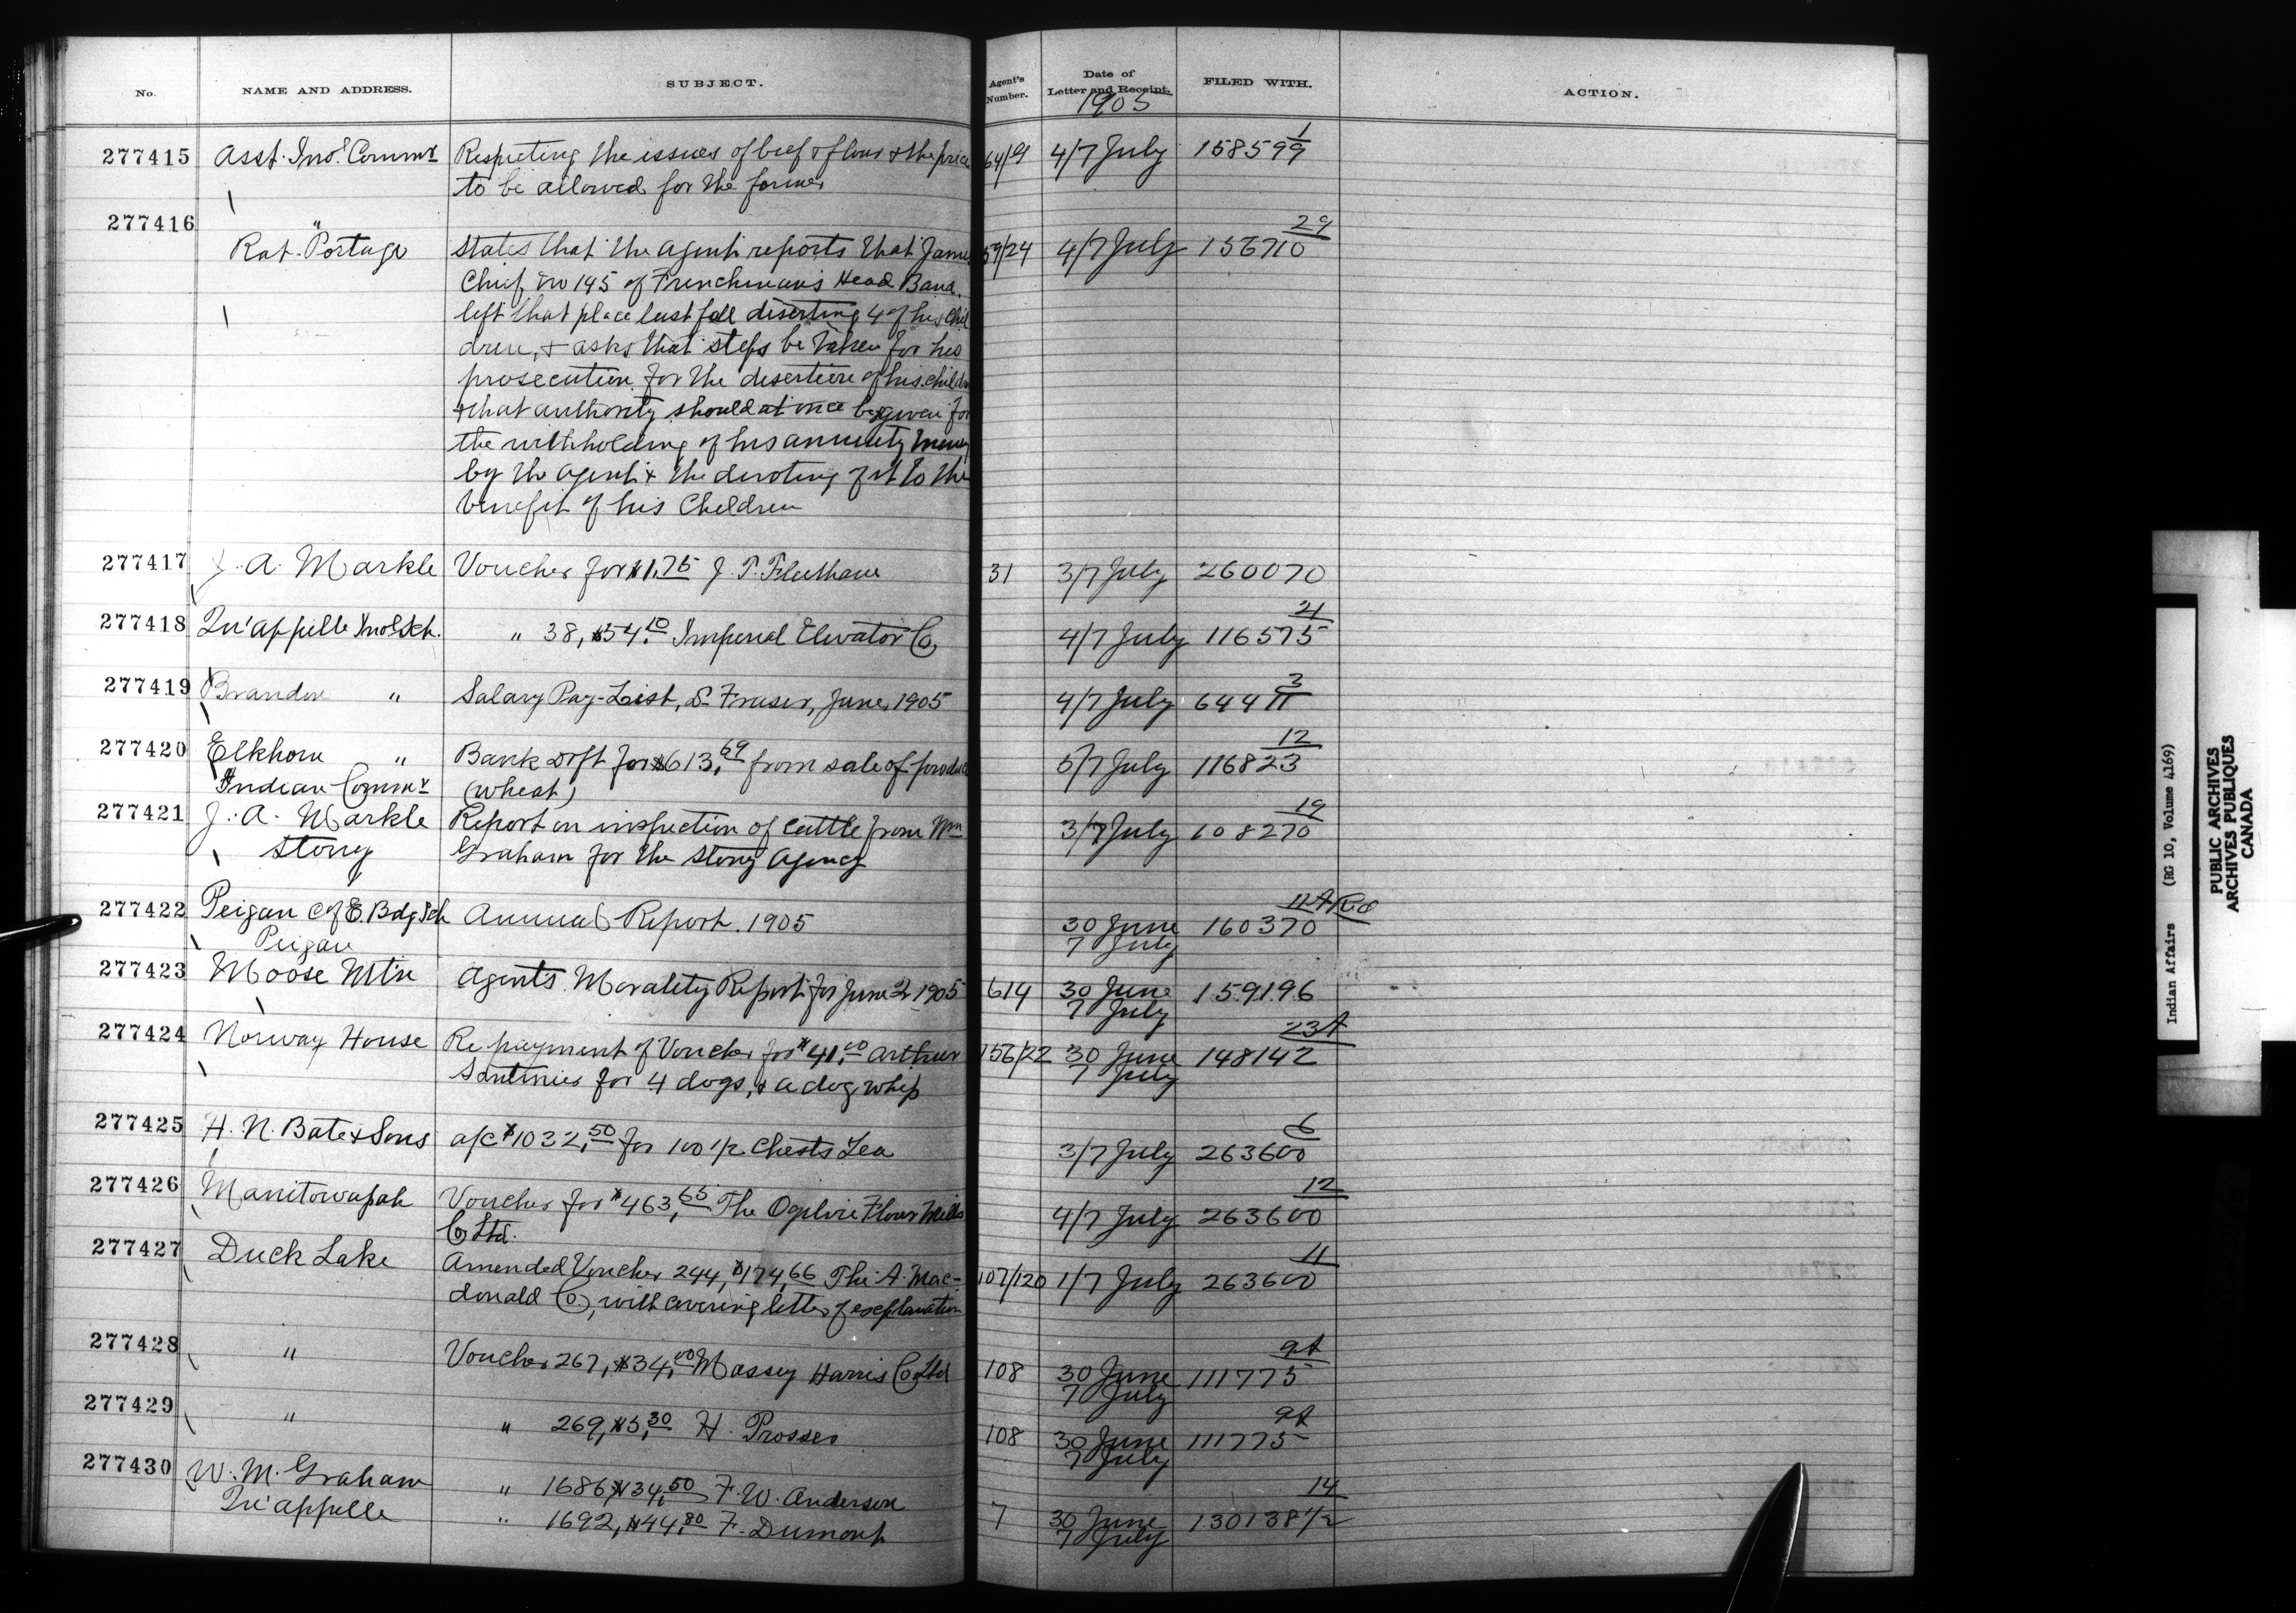 No.
NAME AND ADDRESS.
SUBJECT.
Agent's Number.
Date of Letter and Receipt.
1905
FILED WITH.
ACTION.
277415 Asst. Ind. Commr Respecting the issues of beef & flour & the price 64/19 4/7 July 158599 1
to be allowed for the former
277416 "
Rat Portage States that the Agent reports that James 59/24 4/7 July 156710 29
Chief No 145 of Frenchman's Head Band.
left that place last fall diserting 4 of his Chil
dren, & asks that steps be taken for his
prosecution for the desertion of his childn
& that authority should at once be given for
the withholding of his annuity money
by the Agent & the devoting of it to the
benefit of his Children
277417 J. A. Markle Voucher for $1.75 31 3/7 July 260070
277418 Qu'appelle Indl Sch. " 38, $54.10 Imperial Elevator Co, 4/7 July 116575 21
277419 Brandon " Salary Pay-List, S. Fraser, June, 1905 4/7 July 64411 3
277420 Elkhorn " Bank Dft for $613.69 from sale of produce 5/7 July 116823 12
Indian Commr (wheat)
277421 J. A. Markle Report on inspection of Cattle from Wm 3/7 July 108270 19
Stony Graham for the Stony Agency
277422 Peigan C of E. Bdg Sch Annual Report. 1905 30 June 160370 11A
Peigan 7 July
277423 Moose Mtn Agent's Morality Report for June 1905 614 30 June 159196
7 July
277424 Norway House Re payment of Voucher for $41.00 Arthur 156/22 30 June 148142 23A
for 4 dogs, & a dog whip 7 July
277425 H. N. Bate & Sons a/c $1032.50 for 100 1/2 Chests Tea 3/7 July 263600 6
277426 Manitowapah Voucher for $463.65 The Ogilvie Flour Mills 4/7 July 263600 12
Co Ltd.
277427 Duck Lake Amended Voucher 244, $174.66 The A. Mac- 107/120 1/7 July 263600 11
donald Co, with covering letter of explanation
277428 " Voucher 267, $34.00 Massey Harris Co Ltd 108 30 June 111775 9A
7 July
277429 " " 269, $5.30 H. Prosser 108 30 June 111775 9A
7 July
277430 W. M. Graham " 1686, $34.50 F. W. Anderson
Qu'appelle " 1692, $44.80 F. Dumont 7 30 June 130138 1/2 14
7 July
Indian Affairs (RG 10, Volume 4169)
PUBLIC ARCHIVES
ARCHIVES PUBLIQUES
CANADA